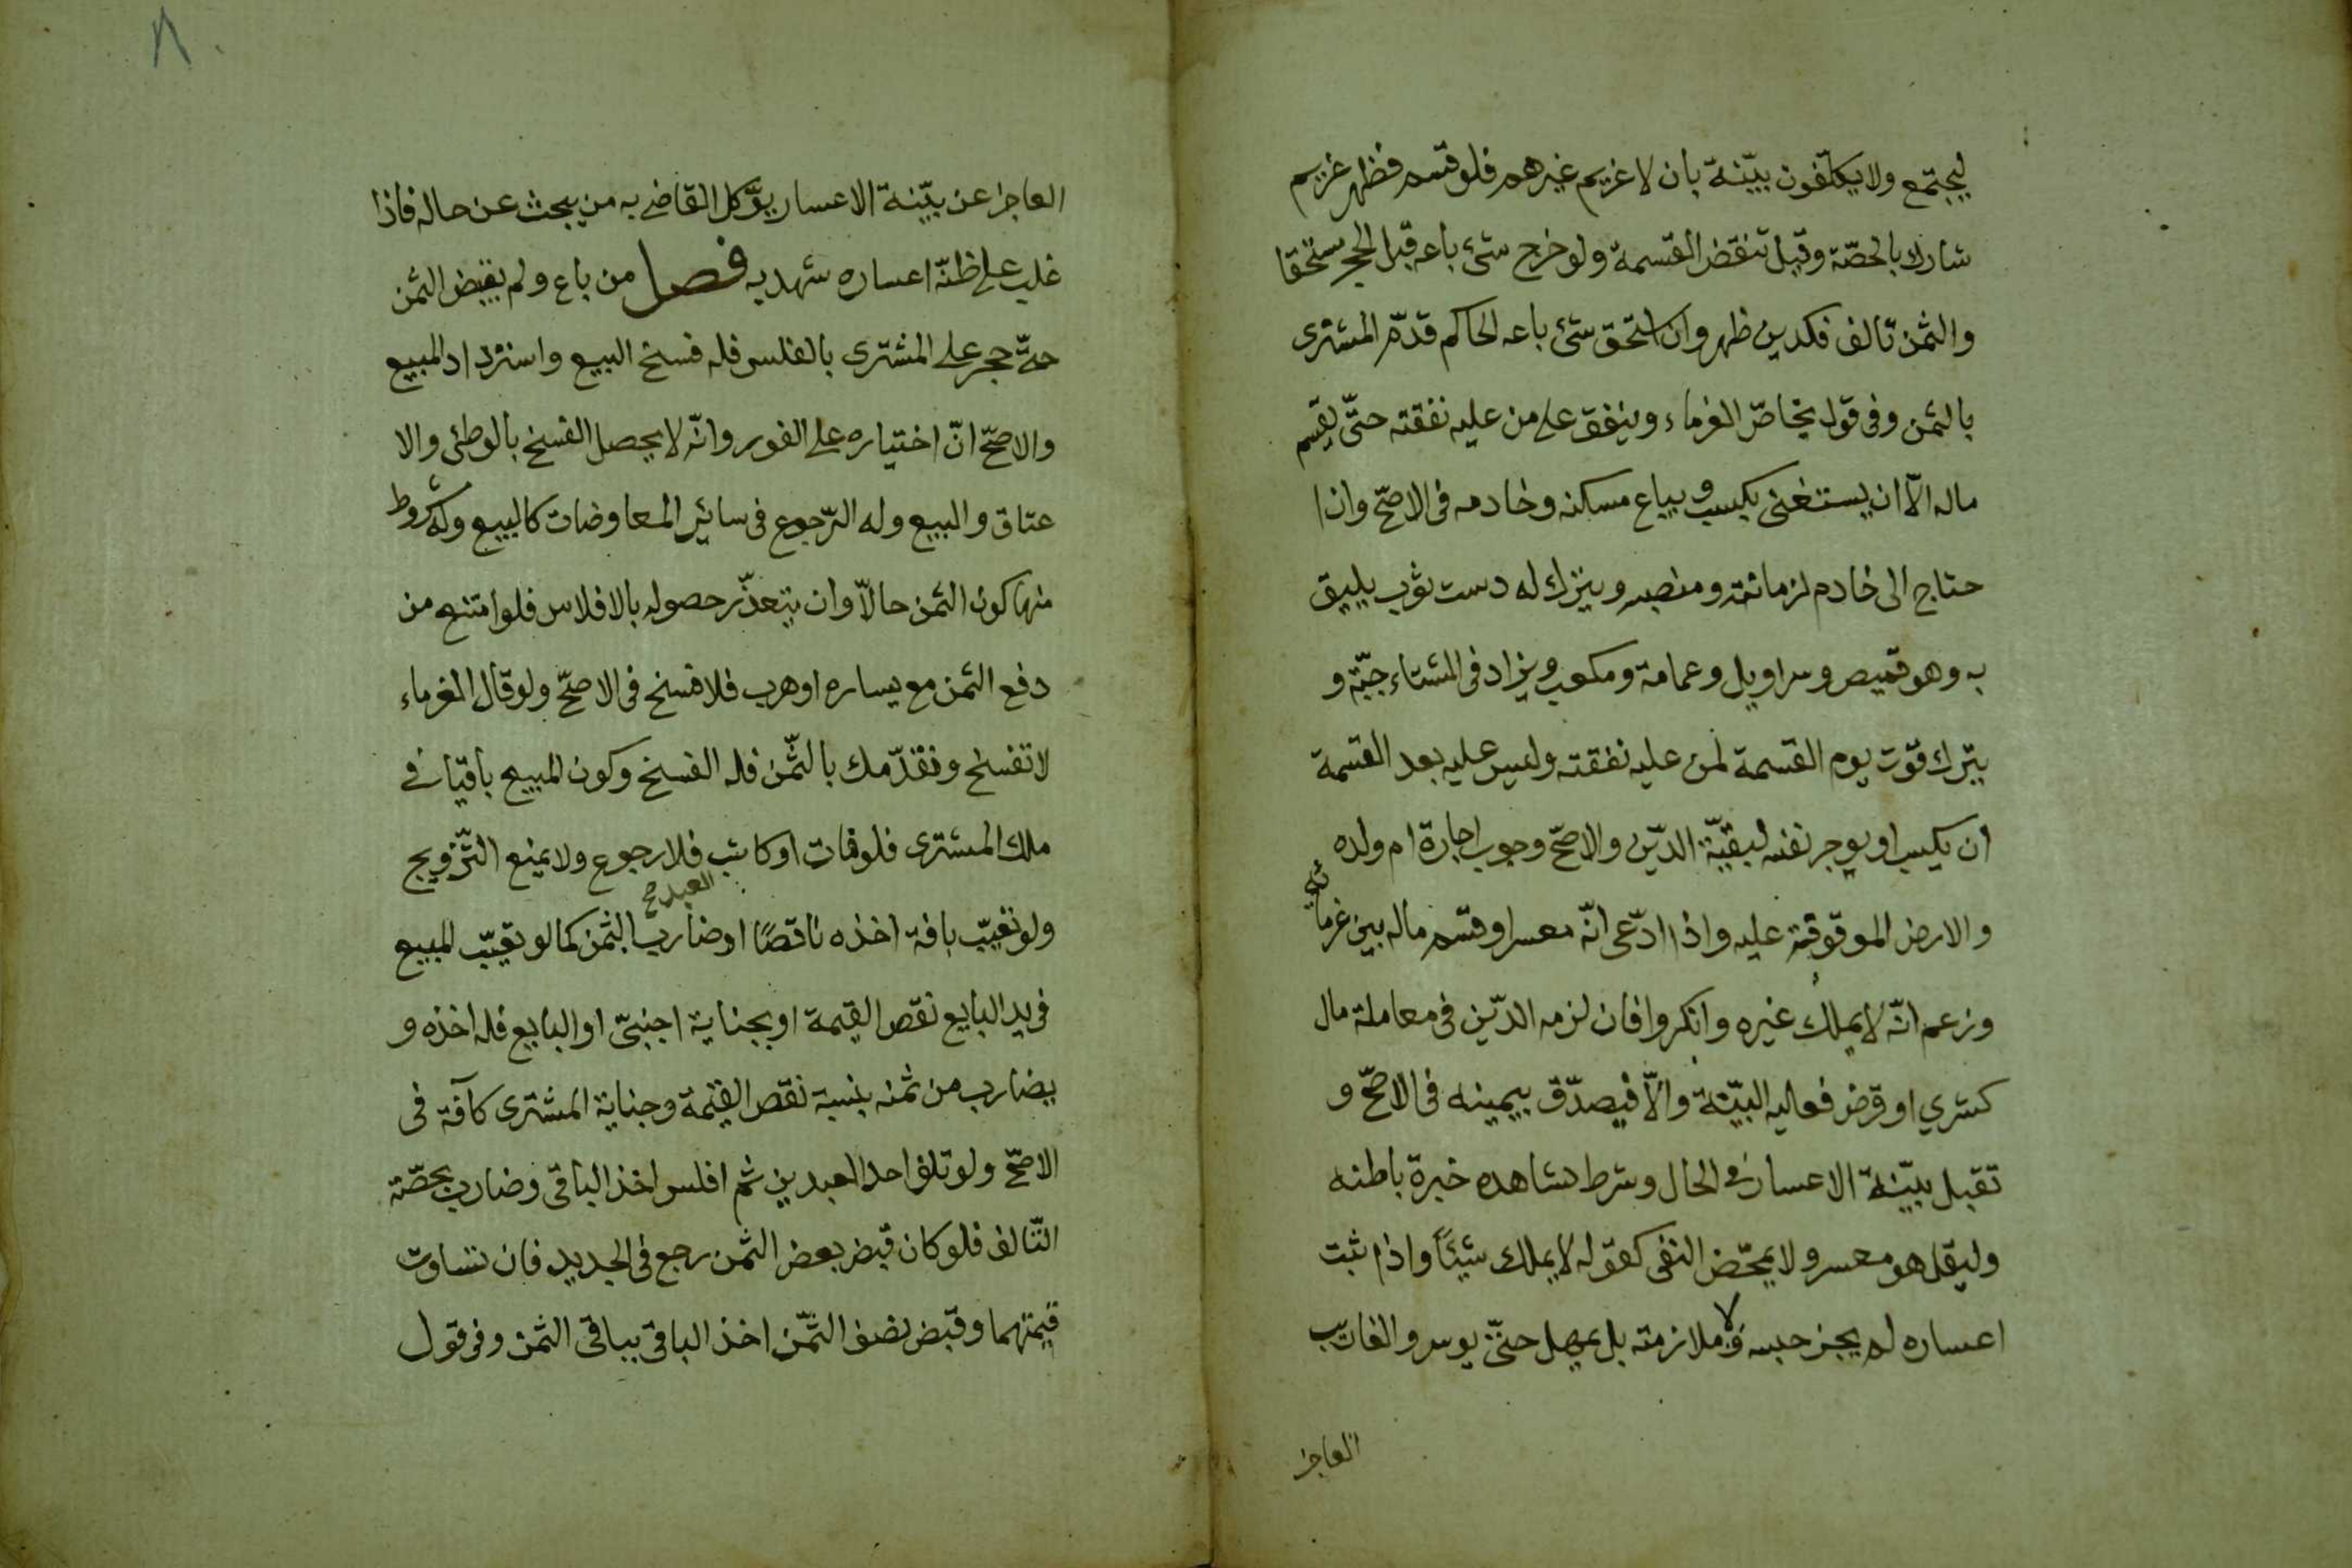 ليجتمع ولا يكلّفون ببيّنة بان لا غريم غيرهم فلو قسم فظهر غريم
شارك بالحصّة وقيل تنقض القسمة ولو خرج شئ باعه قبل الحجر مستحقا
والثمن تالف فكدين ظهر وان استحق شئ باعه الحاكم قدّم المشترى
بالثمن وفى قول يخاصّ الغرماء وينفق على من عليه نفقته حتّى يقسم
ماله الّا ان يستغنى بكسب ويباع مسكنه وخادمه فى الاصحّ وان ا
حتاج الى خادم لزمانته ومنصبه ويترك له دست ثوب يليق
به وهو قميص وسراويل وعمامة ومكعب ويزاد فى الشتاء جبّة و
يترك قوت يوم القسمة لمن عليه نفقته وليس عليه بعد القسمة
ان يكسب او يوجر نفسه لبقيّة الدّين والاصحّ وجوب اجارة ام ولده
والارض الموقوفة عليه واذا ادّعى انّه معسر او قسم ماله بين غرمائه
وزعم انّه لا يملك غيره وانكروا فان لزمه الدّين فى معاملة مال
كشري او قرض فعاليه البيّنة والّا فيصدّق بيمينه فى الاصحّ و
تقبل بيّنة الاعسار فى الحال وشرط شاهده خبرة باطنه
وليقل هو معسر ولا يمحّض النفى كقوله لا يملك شيئًا واذا ثبت
اعساره لم يجز حبسه ولا ملازمته بل يمهل حتّى يوسر والغائب
العاجز
٨٠
العاجز عن بيّنة الاعسار يوّكل القاضى به من يبحث عن حاله فاذا
غلب على ظنّه اعساره شهد به فصل من باع ولم يقبض الثمن
حتّى حجر على المشترى بالفلس فله فسخ البيع واسترداد المبيع
والاصحّ انّ اختياره على الفور وانّه لا يحصل الفسخ بالوطئ والا
عتاق والبيع وله الرّجوع فى سائر المعاوضات كالبيع وله شروط
منها كون الثمن حالّا وان يتعذّر حصوله بالافلاس فلو امتنع من
دفع الثمن مع يساره او هرب فلا فسخ فى الاصحّ ولو قال الغرماء
لا تفسخ ونقدّمك بالثّمن فله الفسخ وكون المبيع باقيا فى
ملك المشترى فلو فات او كاتب العبد صح فلا رجوع ولا يمنع التّزويج
ولو تعيّب بافة اخذه ناقصًا او ضارب بالثمن كما لو تعيّب المبيع
فى يد البايع نقص القيمة او بجناية اجنبىّ او البايع فله اخذه و
يضارب من ثمنه بنسبة نقص القيمة وجناية المشترى كآفة فى
الاصحّ ولو تلف احد العبدين ثم افلس اخذ الباقى وضارب بحصّة
التّالف فلو كان قبض بعض الثمن رجع فى الجديد فان تساوت
قيمتهما وقبض نصف الثّمن اخذ الباقى بباقى الثمن وفى قول